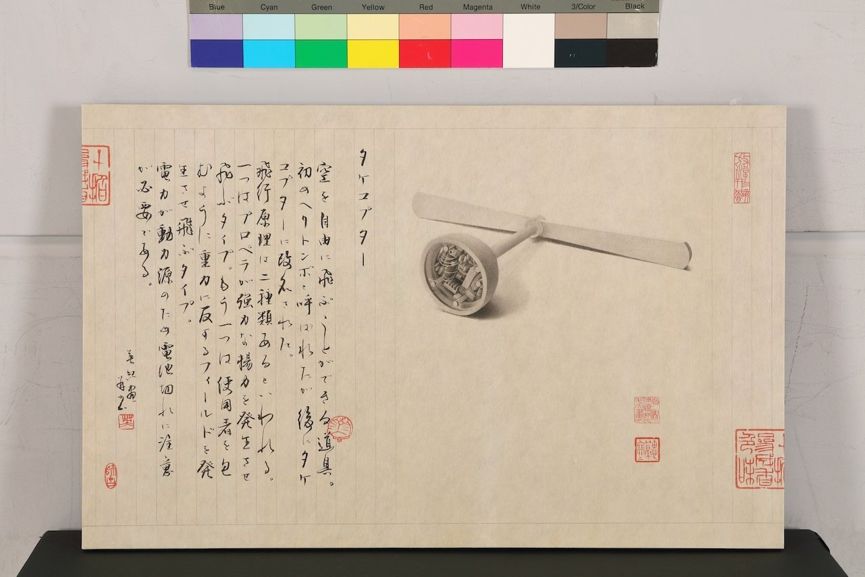 Blue Cyan Green Yellow Red Magenta White 3/Color Black
タケコプター
空を自由に飛ぶことができる道具。
初のヘリトンボと呼ばれたが後にタケ
コプターに改名された。
飛行原理は二種類あるといわれる。
一つはプロペラが強力な揚力を発生させ
飛ぶタイプ。もう一つは使用者を包
むように重力に反するフィールドを発
生させ飛ぶタイプ。
電力が動力源のため電池切れに注意
が必要である。